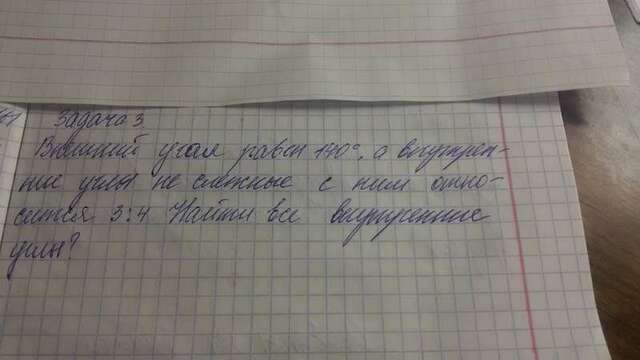 Задача 3
Внешний угол равен 140°, а внутрен-
ние углы не смежные с ним отно-
сятся 3:4 Найти все внутренние
углы?